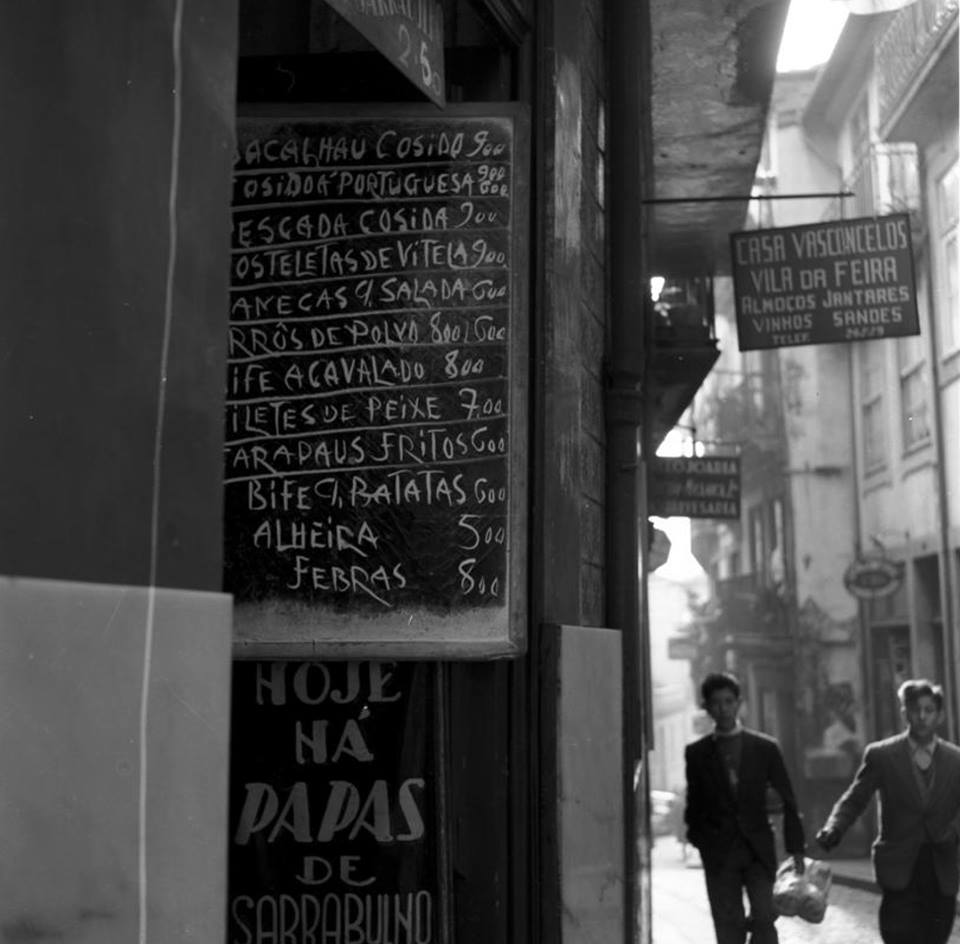 SARRABULHO
2.50
BACALHAU COSIDO 900
COSIDO Á PORTUGUESA 900 600
PESCADA COSIDA 900
COSTELETAS DE VITELA 900
CANECAS C/ SALADA 600
ARRÔS DE POLVO 800, 600
BIFE ACAVALADO 800
FILETES DE PEIXE 7.00
CARAPAUS FRITOS 600
BIFE C/ BATATAS 600
ALHEIRA 500
FEBRAS 800
HOJE
HÁ
PAPAS
DE
SARRABULHO
CASA VASCONCELOS
VILA DA FEIRA
ALMOÇOS JANTARES
VINHOS SANDES
TELEF.